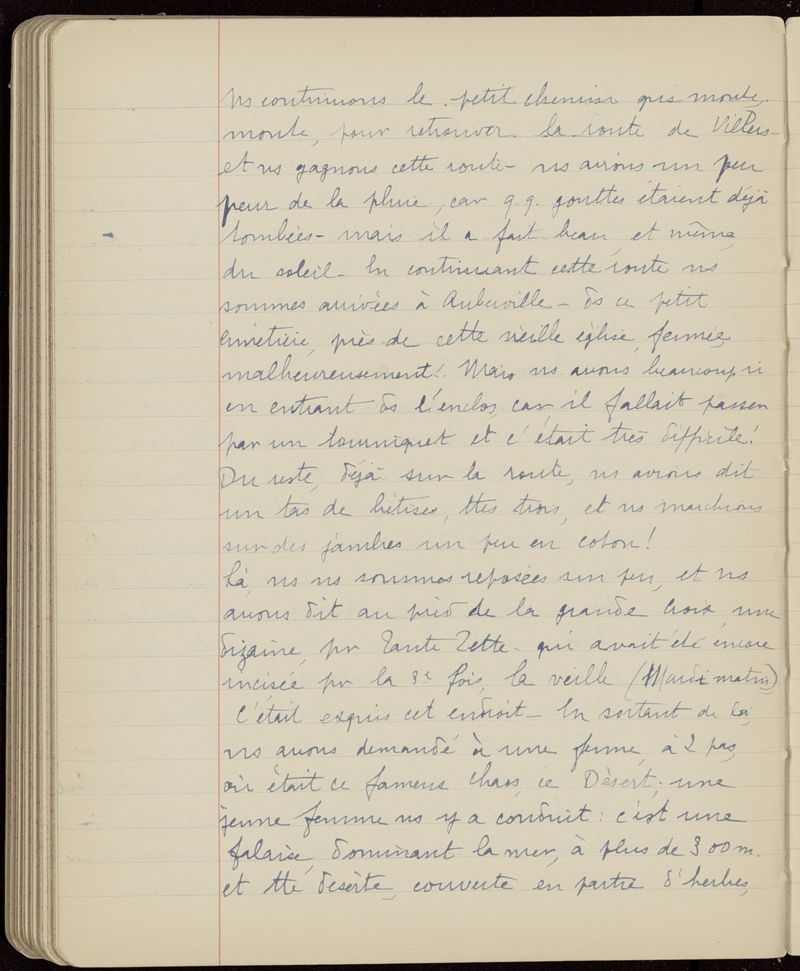 ns continuons le petit chemin qui monte,
monte, pour retrouver la route de Villers -
et ns gagnons cette route - ns avions un peu
peur de la pluie, car q.q. gouttes étaient déjà
tombées - mais il a fait beau, et même
du soleil - En continuant cette route ns
sommes arrivées à Auberville - ds ce petit
cimetière, près de cette vieille église, fermée,
malheureusement! Mais ns avons beaucoup ri
en entrant ds l'enclos, car il fallait passer
par un tourniquet et c'était très difficile!
Du reste, déjà sur la route, ns avions dit
un tas de bêtises, ttes trois, et ns marchions
sur des jambes un peu en coton!
Là, ns ns sommes reposées un peu, et ns
avons dit au pied de la grande Croix, une
dizaine, pr Tante Zette - qui avait été encore
incisée pr la 3e fois, la veille (Mardi matin)
C'était exquis cet endroit - En sortant de là,
ns avons demandé à une femme, à 2 pas,
où était ce fameux chaos, ce Désert; une
jeune femme ns y a conduit: c'est une
falaise, dominant la mer, à plus de 300 m.
et tte déserte, couverte en partie d'herbes,